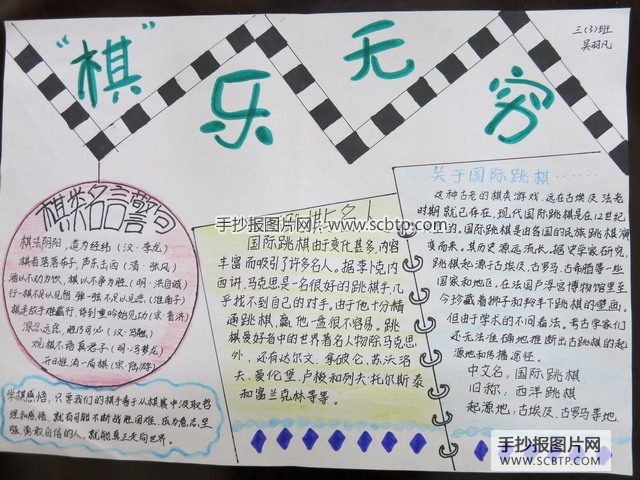 “棋”乐无穷
三(3)班
吴羽凡
棋类名言警句
棋法阴阳,道为经纬(汉·李尤)
棋者落落布子,声东击西(清·张风)
观棋不语真君子(明·冯梦龙)
学棋感悟:只要我们的棋手善于从棋局中汲取哲
理和感悟,就有可能不断战胜困难,成为意志坚
强、勇敢自信的人,就能真正走向世界。
跳棋与名人
国际跳棋由于变化甚多,内容
丰富而吸引了许多名人。据李卜克内
西讲,马克思是一名很好的跳棋手,几
乎找不到自己的对手。由于他十分精
通跳棋,赢他一盘很不容易。跳
棋爱好者中的世界著名人物除马克思
外,还有达尔文、拿破仑、苏沃洛
夫、爱伦堡、卢梭和列夫·托尔斯泰
和富兰克林等等。
关于国际跳棋……
这种古老的棋类游戏,远在古埃及法老
时期就已存在,现代国际跳棋是在12世纪
出现的,国际跳棋是由各国的民族跳棋演
变而来,其历史源远流长。据史学家研究,
跳棋起源于古埃及、古罗马、古希腊等一些
国家和地区。在法国卢浮宫博物馆里至
今珍藏着狮子和羚羊下跳棋的壁画。
但由于学术的不同看法。考古学家们
还无法准确地推断出古跳棋的起
源地和传播途径。
中文名:国际跳棋
旧称:西洋跳棋
起源地:古埃及、古罗马等地.
手抄报图片网
www.scbtp.com
手抄报图片网
WWW.SCBTP.COM